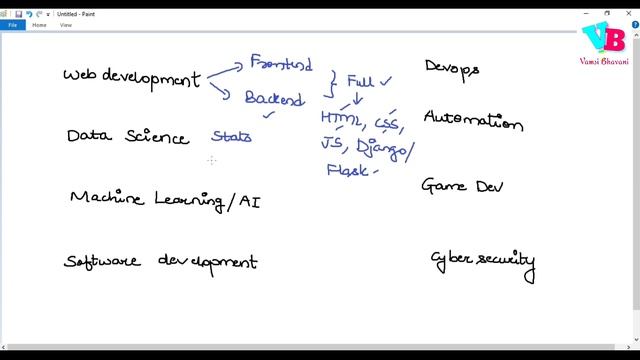 Untitled - Paint
File
VB
Vamsi Bhavani
Web development
Frontend
Backend
Full
HTML, CSS,
JS, Django/
Flask
Data Science Stats
Machine Learning/AI
Software development
Devops
Automation
Game Dev
Cyber security